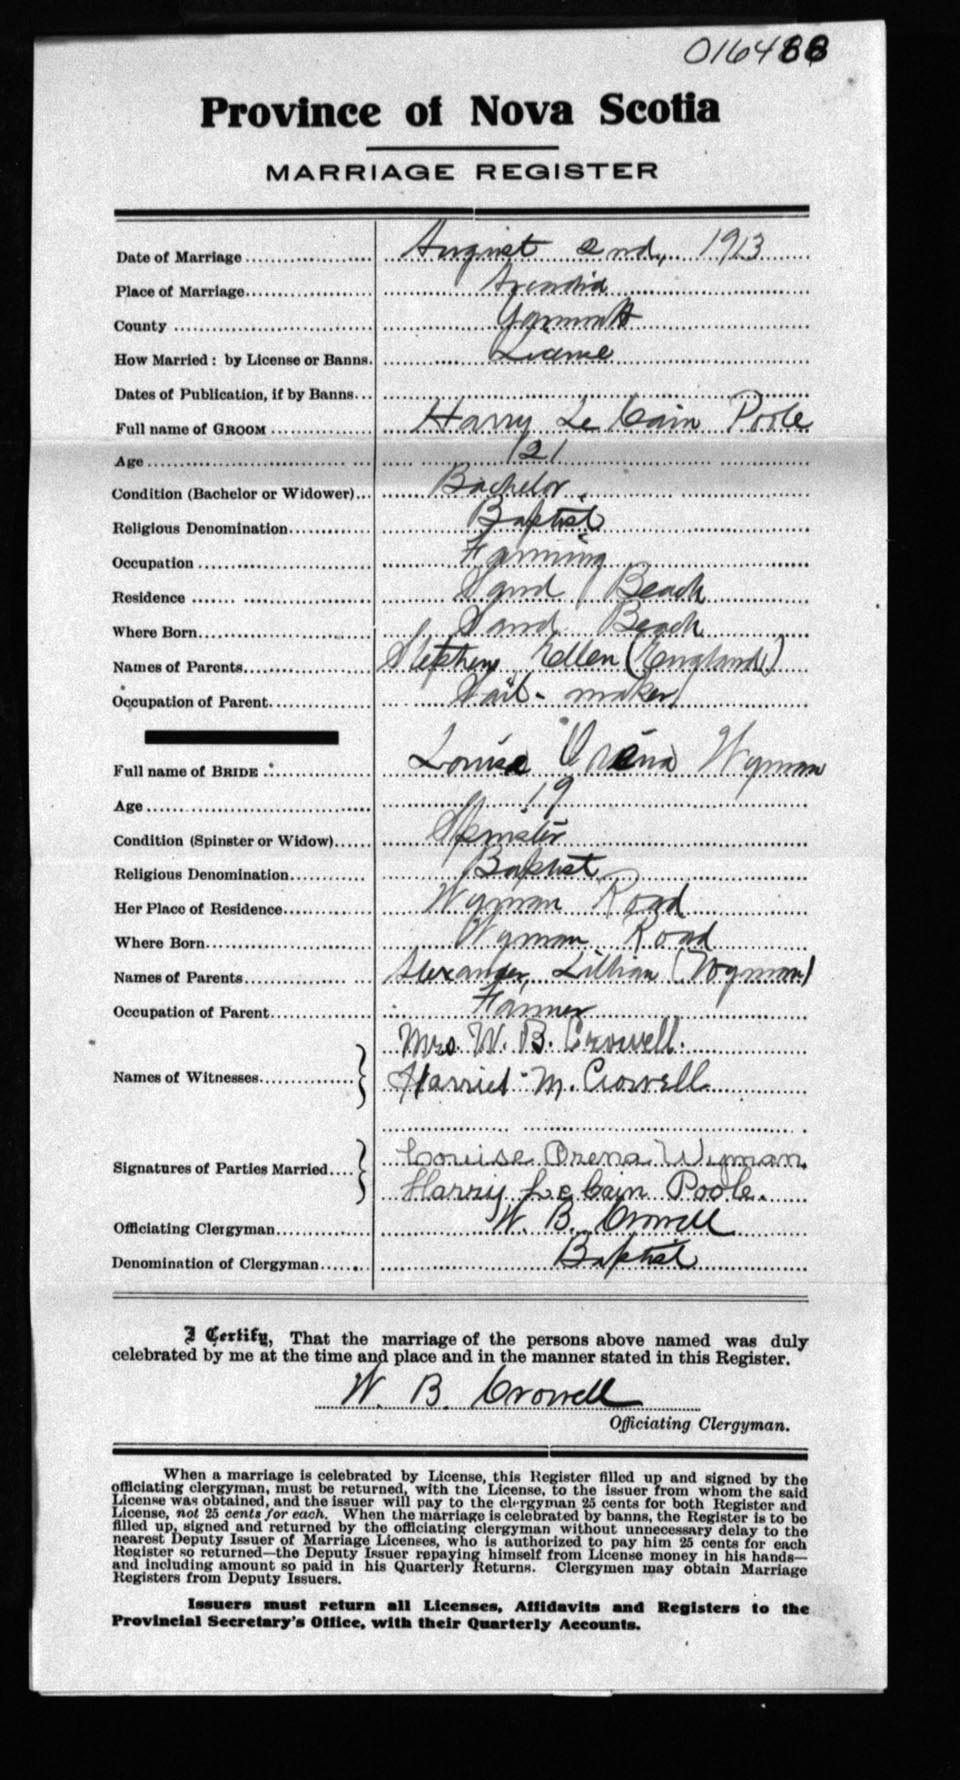 016488
Province of Nova Scotia
MARRIAGE REGISTER
Date of Marriage August 2nd, 1913
Place of Marriage Arcadia
County Yarmouth
How Married: by License or Banns. License
Dates of Publication, if by Banns
Full name of GROOM Harry Le Cain Poole
Age 21
Condition (Bachelor or Widower) Bachelor.
Religious Denomination Baptist
Occupation Farming
Residence Sand Beach
Where Born Sand Beach
Names of Parents Stephen Ellen (England)
Occupation of Parent Sail-maker
Full name of BRIDE Louise Orena Wyman
Age 19
Condition (Spinster or Widow) Spinster
Religious Denomination Baptist
Her Place of Residence Wyman Road
Where Born Wyman Road
Names of Parents Alexander, Lillian (Wyman)
Occupation of Parent Farmer
Mrs. W. B. Crowell.
Names of Witnesses Harriet M. Crowell
Louise Orena Wyman.
Signatures of Parties Married Harry Le Cain Poole.
Officiating Clergyman W. B. Crowell
Denomination of Clergyman Baptist
I Certify, That the marriage of the persons above named was duly
celebrated by me at the time and place and in the manner stated in this Register.
W. B. Crowell
Officiating Clergyman.
When a marriage is celebrated by License, this Register filled up and signed by the
officiating clergyman, must be returned, with the License, to the issuer from whom the said
License was obtained, and the issuer will pay to the clergyman 25 cents for both Register and
License, not 25 cents for each. When the marriage is celebrated by banns, the Register is to be
filled up, signed and returned by the officiating clergyman without unnecessary delay to the
nearest Deputy Issuer of Marriage Licenses, who is authorized to pay him 25 cents for each
Register so returned—the Deputy Issuer repaying himself from License money in his hands—
and including amount so paid in his Quarterly Returns. Clergymen may obtain Marriage
Registers from Deputy Issuers.
Issuers must return all Licenses, Affidavits and Registers to the
Provincial Secretary's Office, with their Quarterly Accounts.